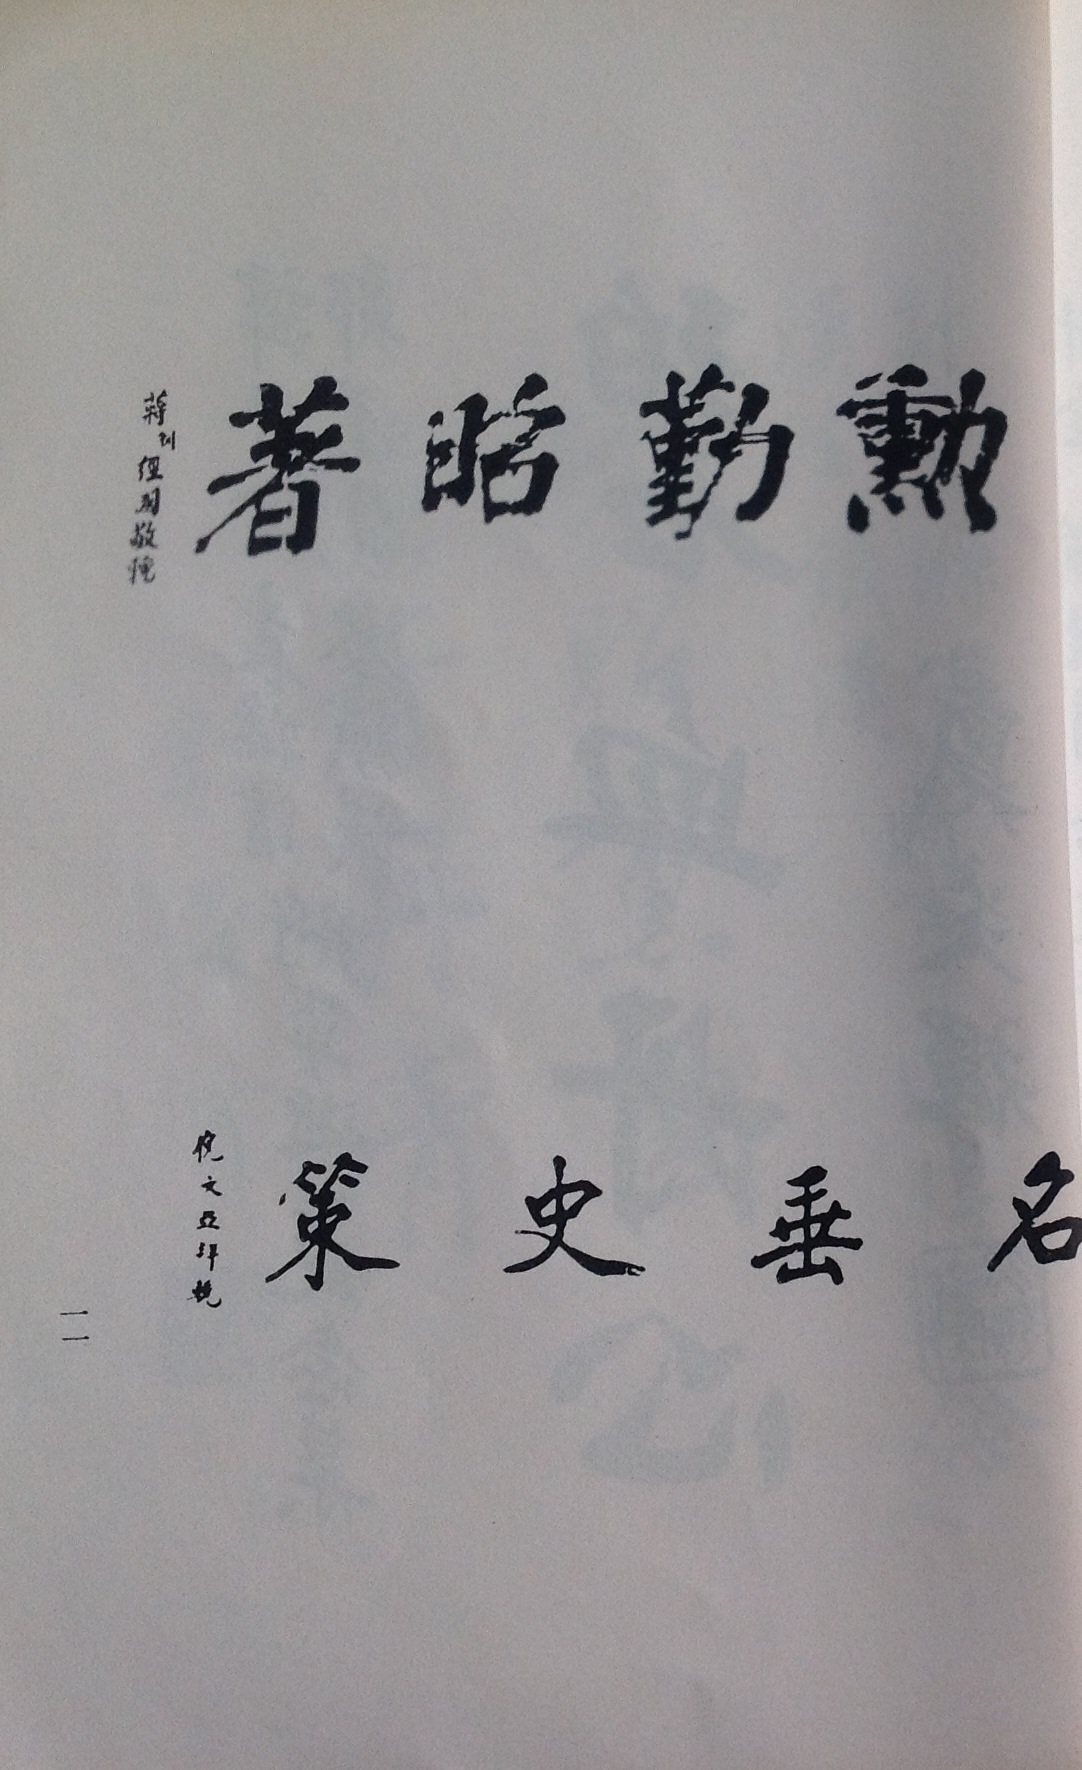 勳勤昭著
蔣經國敬輓
名垂史策
倪文亞拜輓
一一